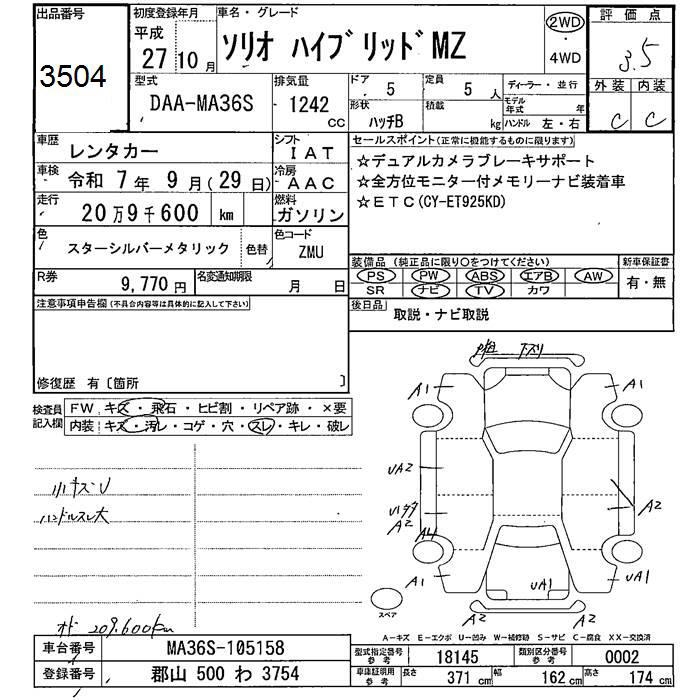 出品番号
3504
初度登録年月
平成
27 10 月
車名・グレード
ソリオ ハイブリッド MZ
2WD
・
4WD
評価点
3.5
型式
DAA-MA36S
排気量
1242
CC
ドア
5
定員
5 人
形状
ハッチB
積載
kg
ディーラー・並行
モデル年式
年
ハンドル 左・右
外装 内装
C C
車歴
レンタカー
シフト
I A T
車検
令和 7 年 9 月 ( 29 日)
冷房
A A C
走行
20 万 9 千 600 km
燃料
ガソリン
色
スターシルバーメタリック
色替
色コード
ZMU
セールスポイント(正常に機能するものに限ります)
☆デュアルカメラブレーキサポート
☆全方位モニター付メモリーナビ装着車
☆ETC(CY-ET925KD)
R券
9,770 円
名変通知期限
月 日
装備品 (純正品に限り○をつけてください)
PS PW ABS エアB AW
SR ナビ TV カワ
新車保証書
有・無
注意事項申告欄(不具合内容等は具体的に記入して下さい)
後日品
取説・ナビ取説
修復歴 有〔箇所 〕
検査員
記入欄
FW キズ・飛石・ヒビ割・リペア跡・×要
内装 キズ・汚レ・コゲ・穴・スレ・キレ・破レ
小キズU
ハンドルスレ大
下スリ
A1
A1
UA2
A2
A2
A4
A1
UA1
UA1
A2
A2
スペア
オド 209.600km
A−キズ E−エクボ U−凹み W−補修跡 S−サビ C−腐食 XX−交換済
車台番号
MA36S-105158
型式指定番号
参考
18145
類別区分番号
参考
0002
登録番号
郡山 500 わ 3754
車庫証明用
参考
長さ
371 cm
幅
162 cm
高さ
174 cm